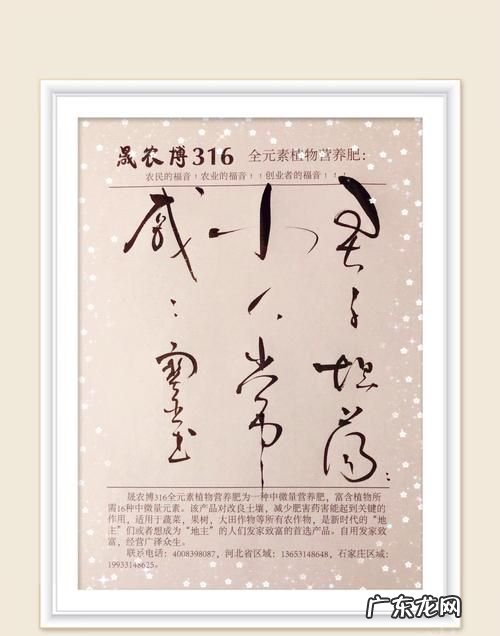 晟农博316 全元素植物营养肥：
农民的福音！农业的福音！！创业者的福音！！！
君子坦荡：
小人常
戚：
书
晟农博316全元素植物营养肥为一种中微量营养肥，富含植物所
需16种中微量元素。该产品对改良土壤，减少肥害药害能起到关键的
作用，适用于蔬菜，果树，大田作物等所有农作物，是新时代的“地
主”们或者想成为“地主”的人们发家致富的首选产品。自用发家致
富，经营广泽众生。
联系电话：4008398087，河北省区域：13653148648，石家庄区域：
19933148625。
广东龙网